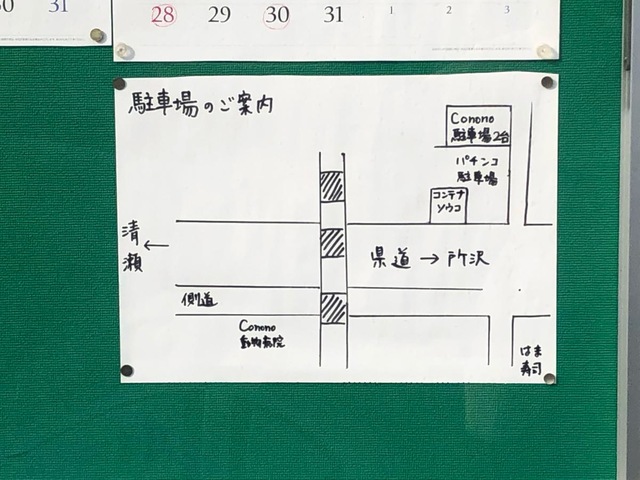 30 31
28 29 30 31 1 2 3
駐車場のご案内
Conono
駐車場2台
パチンコ
駐車場
コンテナ
ソウコ
清瀬 ←
県道 → 所沢
側道
Conono
動物病院
はま
寿司